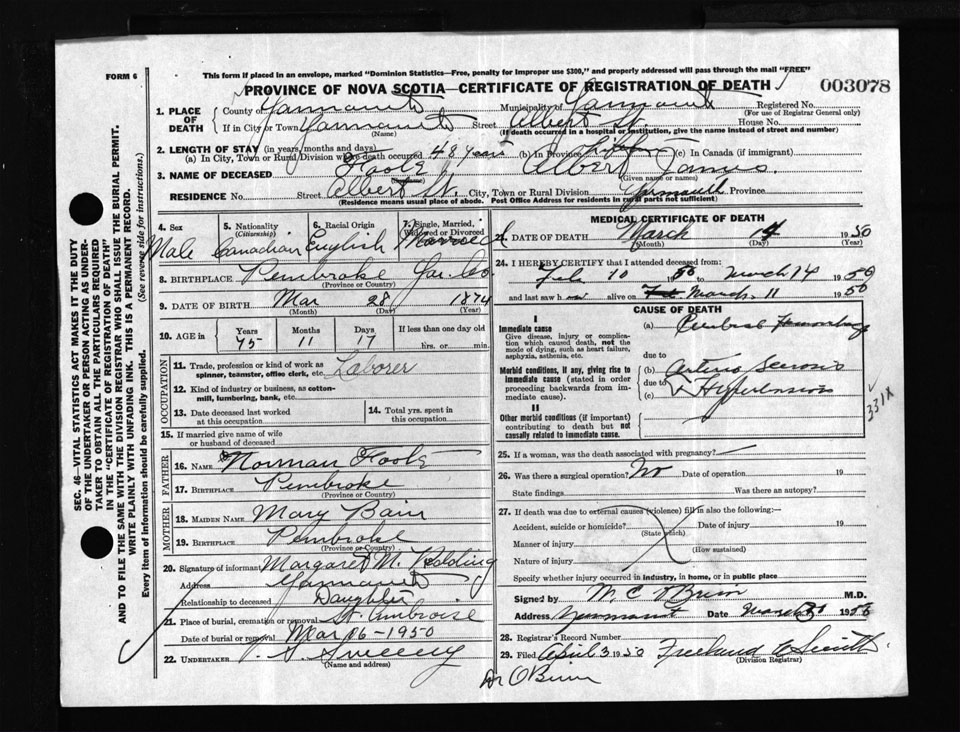 FORM 6
This form if placed in an envelope, marked "Dominion Statistics—Free, penalty for improper use $300," and properly addressed will pass through the mail "FREE"
PROVINCE OF NOVA SCOTIA—CERTIFICATE OF REGISTRATION OF DEATH
003078
1. PLACE OF DEATH
County of Yarmouth Municipality of Yarmouth Registered No.
(For use of Registrar General only)
If in City or Town Yarmouth Street Albert St. House No.
(Name) (If death occurred in a hospital or institution, give the name instead of street and number)
2. LENGTH OF STAY (in years, months and days)
(a) In City, Town or Rural Division where death occurred 48 years (b) In Province (c) In Canada (if immigrant)
3. NAME OF DECEASED Foote Albert James.
(Surname) (Given name or names)
RESIDENCE No. Street Albert St. City, Town or Rural Division Yarmouth Province
(Residence means usual place of abode. Post Office Address for residents in rural parts not sufficient)
4. Sex 5. Nationality (Citizenship) 6. Racial Origin 7. Single, Married, Widowed or Divorced
Male Canadian English Married
8. BIRTHPLACE Pembroke Yar. Co.
(Province or Country)
9. DATE OF BIRTH Mar 28 1874
(Month) (Day) (Year)
10. AGE in Years Months Days If less than one day old
75 11 17 hrs. or min.
OCCUPATION
11. Trade, profession or kind of work as spinner, teamster, office clerk, etc. Laborer
12. Kind of industry or business, as cotton-mill, lumbering, bank, etc.
13. Date deceased last worked at this occupation
14. Total yrs. spent in this occupation
15. If married give name of wife or husband of deceased
FATHER
16. NAME Norman Foote
17. BIRTHPLACE Pembroke
(Province or Country)
MOTHER
18. MAIDEN NAME Mary Bain
19. BIRTHPLACE Pembroke
(Province or Country)
20. Signature of informant Margaret M.
Address Yarmouth
Relationship to deceased Daughter
21. Place of burial, cremation or removal St. Ambroise
Date of burial or removal Mar 16-1950
22. UNDERTAKER Sweeny
(Name and address)
MEDICAL CERTIFICATE OF DEATH
March 14 1950
(Month) (Day) (Year)
24. I HEREBY CERTIFY that I attended deceased from:
Feb 10 1950 to March 14 1950
and last saw h alive on March 11 1950
CAUSE OF DEATH
I
Immediate cause
Give disease, injury or complication which caused death, not the mode of dying, such as heart failure, asphyxia, asthenia, etc.
(a) Cerebral Hemorrhage
due to
Morbid conditions, if any, giving rise to immediate cause (stated in order proceeding backwards from immediate cause).
(b) Arterio Sclerosis
due to
(c) Hypertension
331X
II
Other morbid conditions (if important) contributing to death but not causally related to immediate cause.
25. If a woman, was the death associated with pregnancy?
26. Was there a surgical operation? No Date of operation 19
State findings Was there an autopsy?
27. If death was due to external causes (violence) fill in also the following:—
Accident, suicide or homicide? Date of injury 19
(State which)
Manner of injury
(How sustained)
Nature of injury
Specify whether injury occurred in industry, in home, or in public place
Signed by M. C. O'Brien M.D.
Address Yarmouth Date March 1950
28. Registrar's Record Number
29. Filed April 3 1950 Freeland Smith
(Division Registrar)
Dr O'Brien
SEC. 46—VITAL STATISTICS ACT MAKES IT THE DUTY OF THE UNDERTAKER OR PERSON ACTING AS UNDERTAKER TO OBTAIN ALL THE PARTICULARS REQUIRED IN THE "CERTIFICATE OF REGISTRATION OF DEATH" AND TO FILE THE SAME WITH THE DIVISION REGISTRAR WHO SHALL ISSUE THE BURIAL PERMIT.
WRITE PLAINLY WITH UNFADING INK. THIS IS A PERMANENT RECORD.
Every item of information should be carefully supplied. (See reverse side for instructions.)